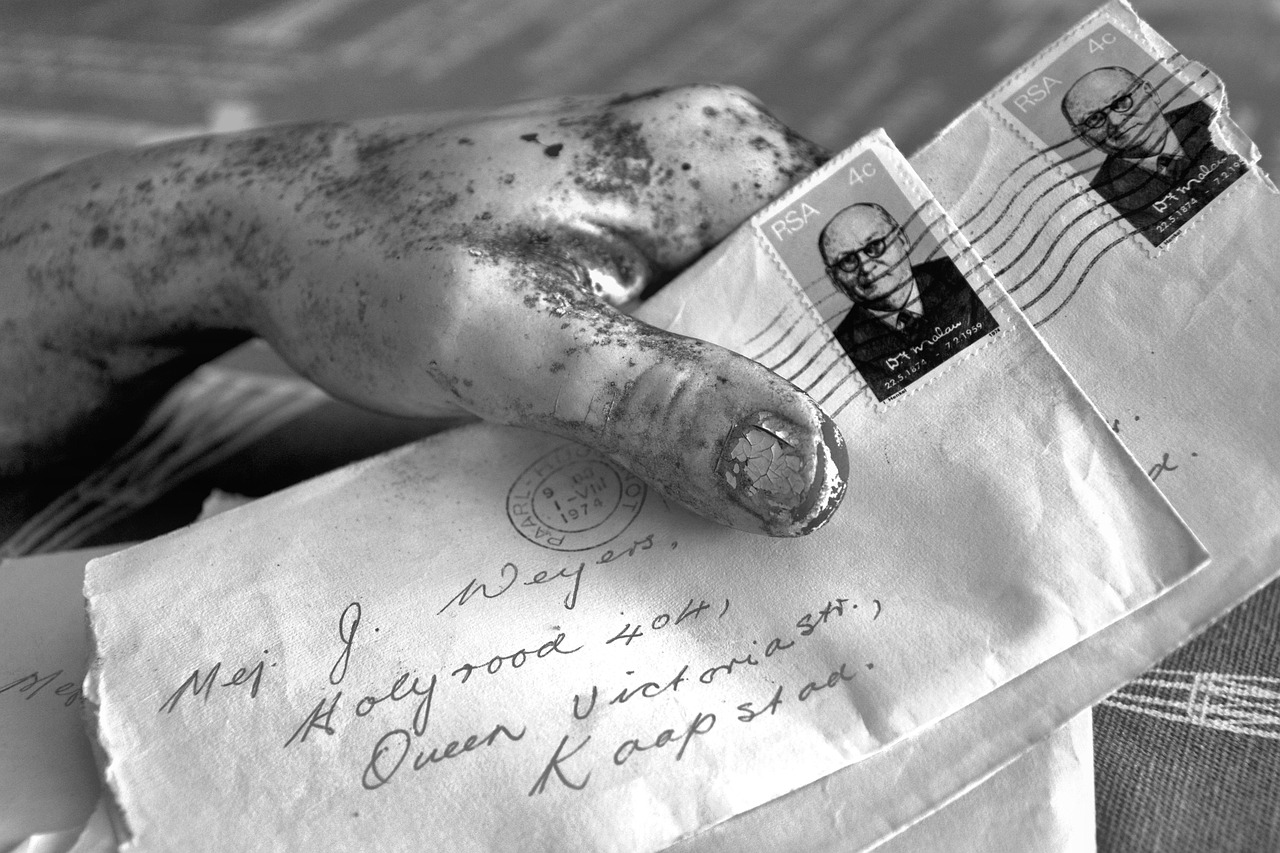 RSA 4c
DF Malan
22.5.1874 - 7.2.1959
RSA 4c
DF Malan
22.5.1874 - 7.2.19
PAARL-HUGUENOT
9
1-VIII
1974
Mej. J. Weyers,
Holyrood 404,
Queen Victoriastr.,
Kaapstad.
Mej
d.